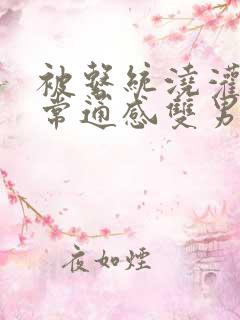 被繫統澆灌
常通感雙男
夜如煙